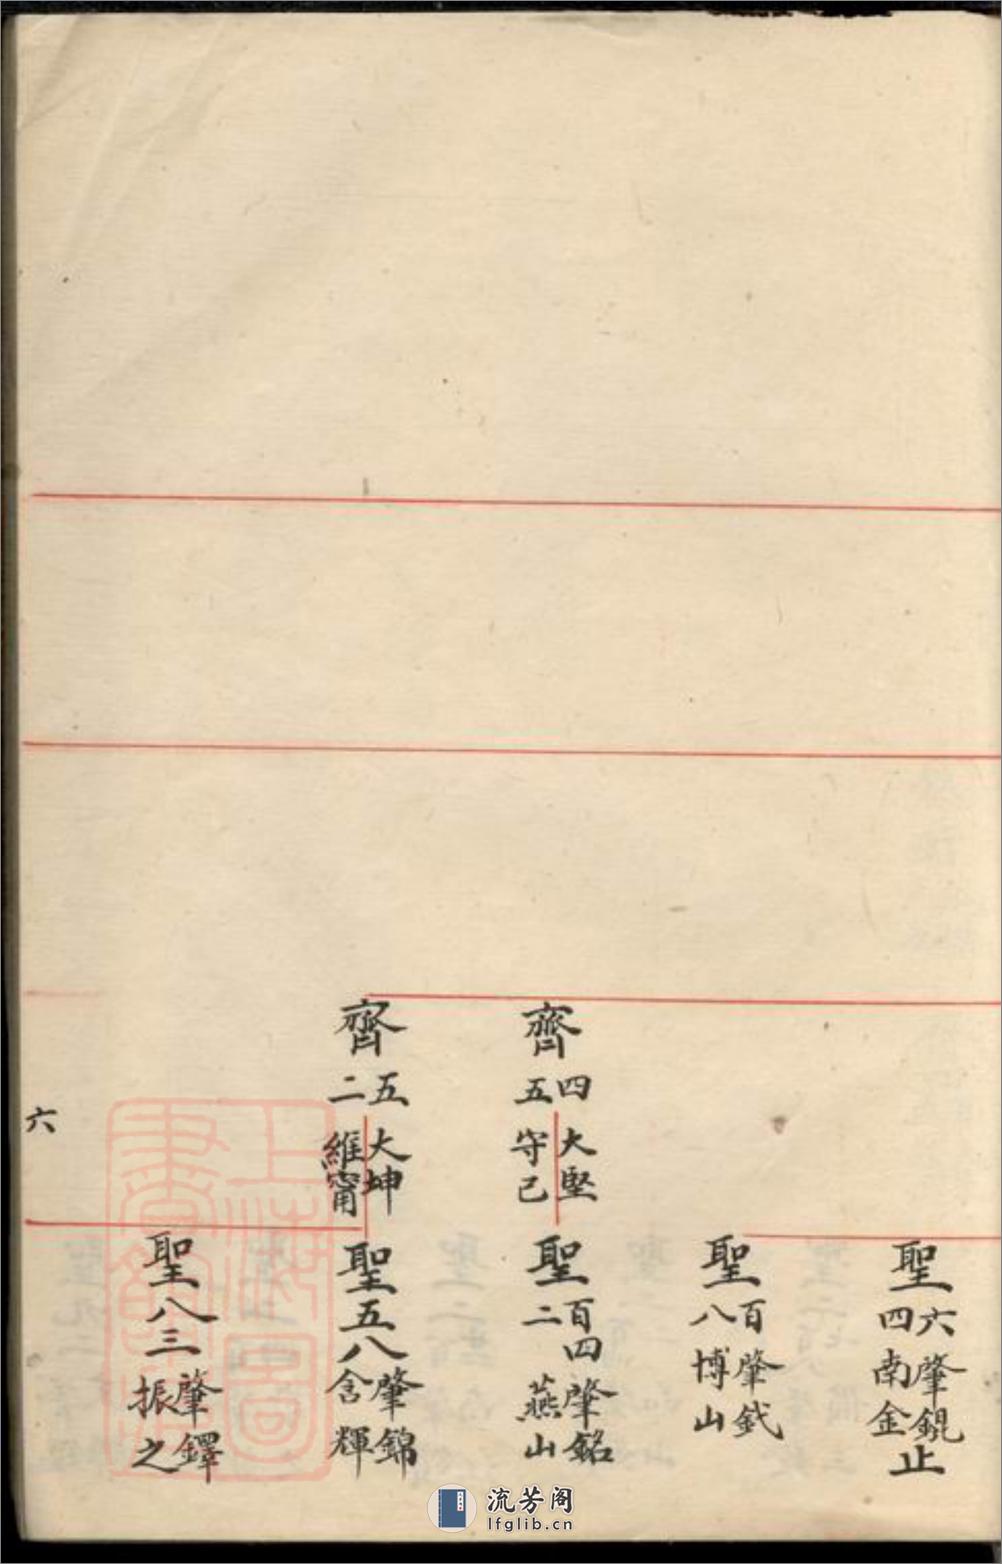 齊
四五
大堅
守己
齊
五二
大坤
維甯
聖
六四
肇錕
南金
止
聖
百八
肇鉞
博山
聖
百四二
肇銘
燕山
聖
五八
肇錦
含輝
聖
八三
肇鐸
振之
六
上海圖書館藏
流芳阁
lfglib.cn